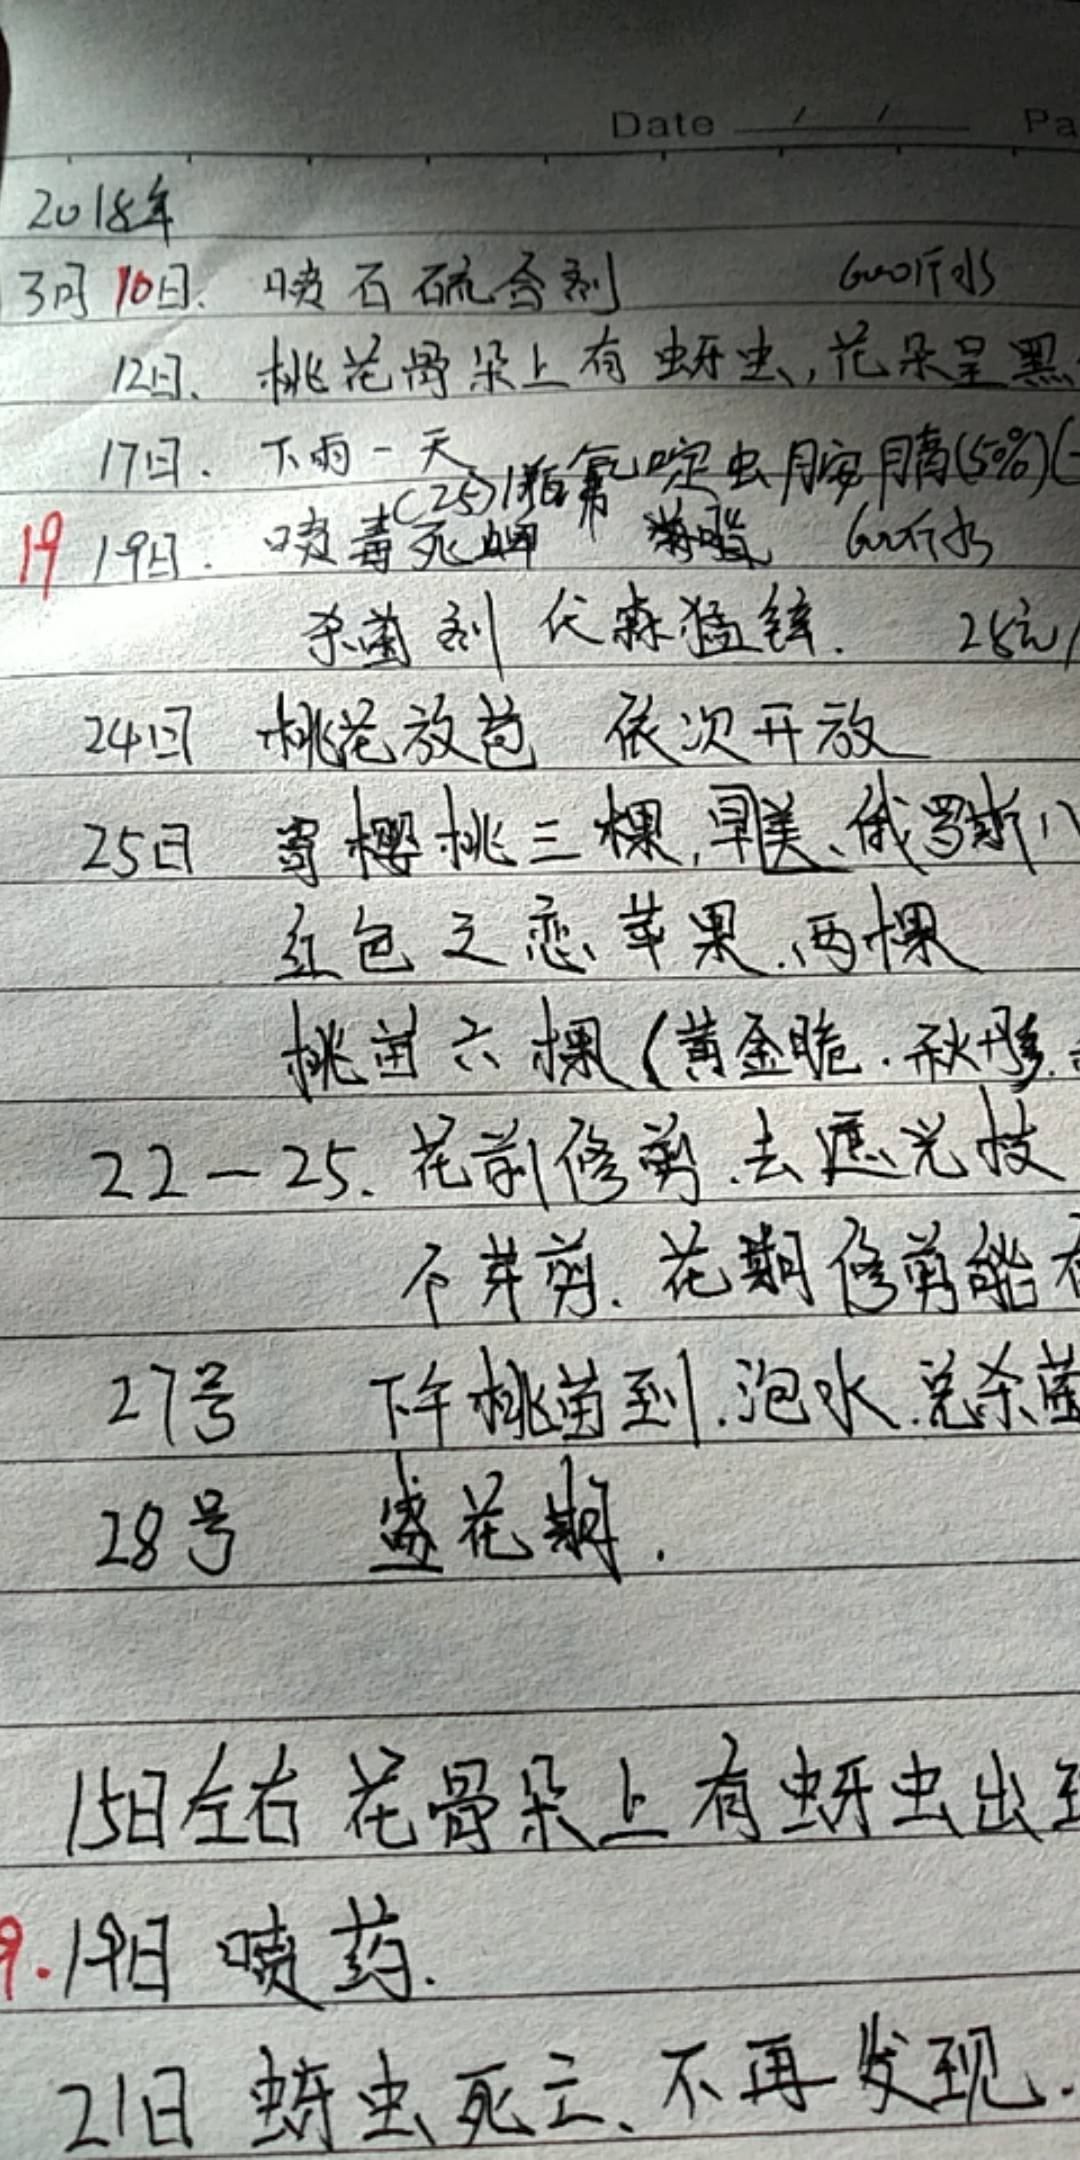 Date / / Pa
2018年
3月10日. 喷石硫合剂 600斤水
12日. 桃花骨朵上有蚜虫,花朵呈黑
17日. 下雨一天
(25)1瓶 氟啶虫胺腈(50%)(
19 19日. 喷毒死蜱 600斤水
杀菌剂 代森猛锌. 28元/
24日 桃花放苞 依次开放
25日 寄樱桃三棵,早美、俄罗斯八
红色之恋、苹果.两棵
桃苗六棵(黄金脆.秋彤.
22-25. 花前修剪.去遮光枝
不芽剪.花期修剪能
27号 下午桃苗到.泡水.兑杀菌
28号 盛花期.
15日左右 花骨朵上有蚜虫出
9.19日 喷药.
21日 蚜虫死亡、不再发现.